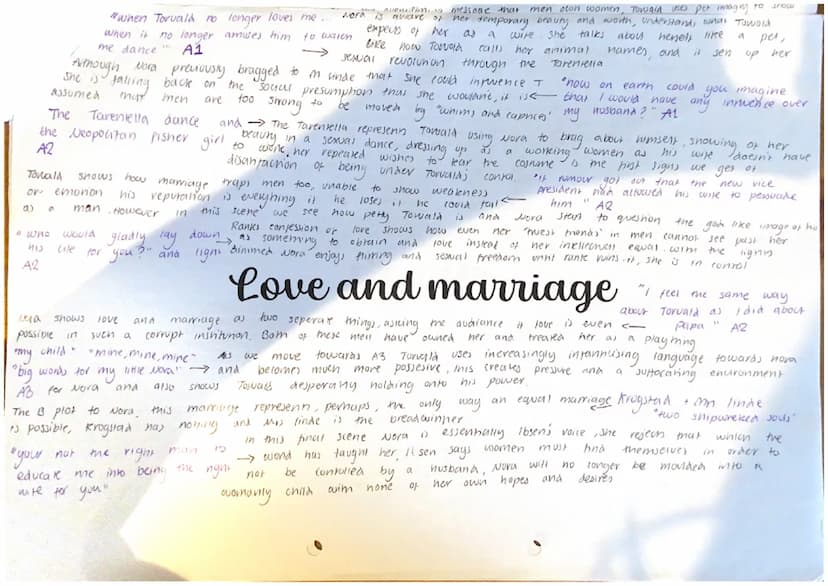 message that men own women, Torvald uses pet images to show
"when Torvald no longer loves me... Nora is aware of her temporary beauty and worth, understands what Torvald
when it no longer amuses him to watch expects of her as a wife. she talks about herself like a pet,
me dance" A1 → like how Torvald calls her animal names, and it sets up her
sexual revolution through the Tarentella
Although Nora previously bragged to M Linde that she could influence T "how on earth could you imagine
she is falling back on the social presumption that she wouldnt, it is ← that I would have any influence over
assumed that men are too strong to be moved by "whims and caprices" my husband?" A1
The Tarentella dance and → The Tarentella represents Torvald using Nora to brag about himself, showing of her
the Neopolitan fisher girl beauty in a sexual dance, dressing up as a working women as his wife doesn't have
A2 to work. her repeated wishes to tear the costume is the first signs we get of
disatisfaction of being under Torvald's control
Torvald shows how marriage traps men too, unable to show weakness "if rumour got out that the new vice
or emotion his reputation is everything if he loses it he could fall ← president had allowed his wife to persuade
as a man. However in this scene we see how petty Torvald is and Nora start to question the god like image of him
him" A2
"who would gladly lay down Ranks confession of love shows how even her "truest friends" in men cannot see past her
his life for you?" and light → as something to obtain and love instead of her intellectual equal. with the lights
A2 dimmed Nora enjoys flirting and sexual freedom until rank ruins it, she is in control
Love and marriage
"I feel the same way
about Torvald as I did about
papa" A2
Nora shows love and marriage as two seperate things, asking the audience if love is even ←
possible in such a corrupt institution. Both of these men have owned her and treated her as a plaything
"my child" "mine, mine, mine" As we move towards A3 Torvald uses increasingly infantilising language towards nora
"big words for my little Nora" → and becomes much more possesive, this creates pressure and a suffocating environment
A3 for Nora and also shows Torvalds desperatly holding onto his power.
The B plot to Nora, this marriage represents, perhaps, the only way an equal marriage Krogstad + Mrs linde
is possible, Krogstad has nothing and Mrs linde is the breadwinner ← "two shipwrecked souls"
in this final scene Nora is essentially Ibsens voice, she rejects that which the
"your not the right man to → world has taught her, Ibsen says women must find themselves in order to
educate me into being the right not be controlled by a husband, Nora will no longer be moulded into a
wife for you" child with none of her own hopes and desires